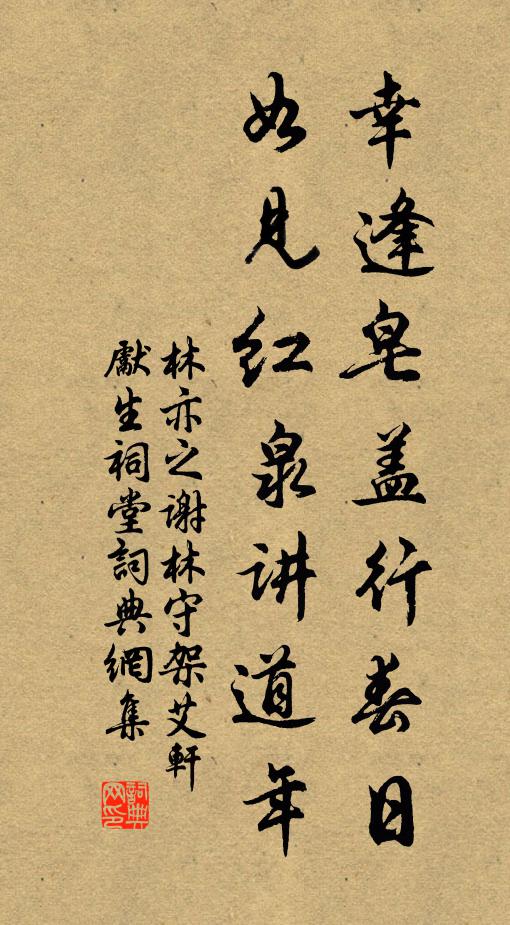 幸逢皂盖行春日
如见红泉讲道年
林亦之谢林守架艾軒
獻生祠堂詞典網集
詞典网印